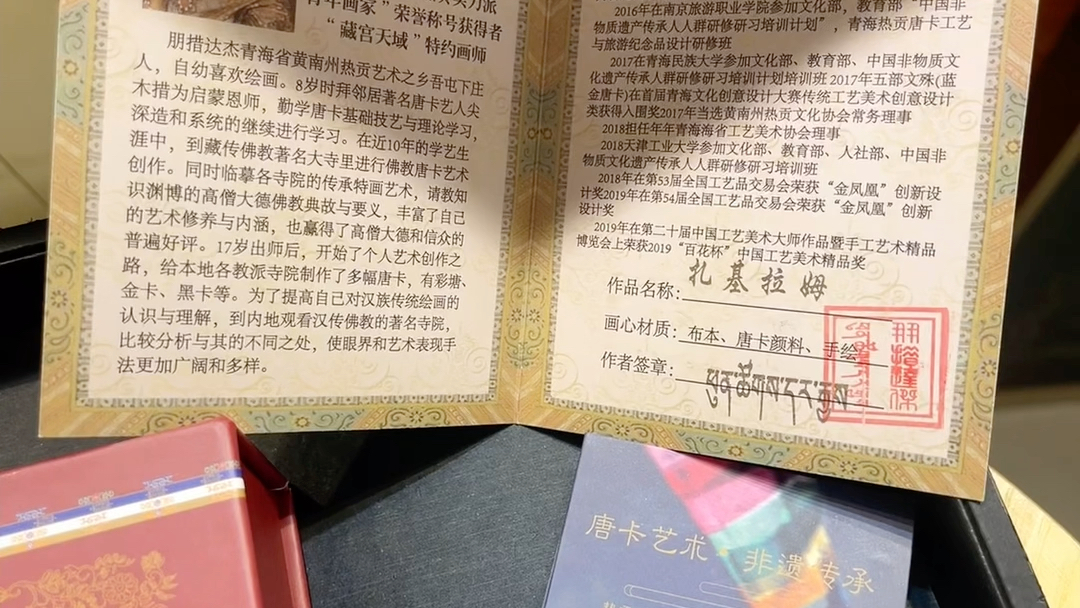 青年画家”荣誉称号获得者
“藏宫天域”特约画师
朋措达杰青海省黄南州热贡艺术之乡吾屯下庄
人，自幼喜欢绘画。8岁时拜邻居著名唐卡艺人尖
木措为启蒙恩师，勤学唐卡基础技艺与理论学习，
深造和系统的继续进行学习。在近10年的学艺生
涯中，到藏传佛教著名大寺里进行佛教唐卡艺术
创作。同时临摹各寺院的传承特画艺术，请教知
识渊博的高僧大德佛教典故与要义，丰富了自己
的艺术修养与内涵，也赢得了高僧大德和信众的
普遍好评。17岁出师后，开始了个人艺术创作之
路，给本地各教派寺院制作了多幅唐卡，有彩塘、
金卡、黑卡等。为了提高自己对汉族传统绘画的
认识与理解，到内地观看汉传佛教的著名寺院，
比较分析与其的不同之处，使眼界和艺术表现手
法更加广阔和多样。
2016年在南京旅游职业学院参加文化部，教育部“中国非
物质遗产传承人群研修研习培训计划”，青海热贡唐卡工艺
与旅游纪念品设计研修班
2017在青海民族大学参加文化部、教育部、中国非物质文
化遗产传承人群研修研习培训计划培训班 2017年五部文殊(蓝
金唐卡)在首届青海文化创意设计大赛传统工艺美术创意设计
类获得入围奖2017年当选黄南州热贡文化协会常务理事
2018担任年年青海海省工艺美术协会理事
2018天津工业大学参加文化部、教育部、人社部、中国非
物质文化遗产传承人人群研修研习培训班
2018年在第53届全国工艺品交易会荣获“金凤凰”创新设
计奖2019年在第54届全国工艺品交易会荣获“金凤凰”创新
设计奖
2019年在第二十届中国工艺美术大师作品暨手工艺术精品
博览会上荣获2019“百花杯”中国工艺美术精品奖
作品名称：扎基拉姆
画心材质：布本、唐卡颜料、手绘
作者签章：
唐卡艺术
非遗传承